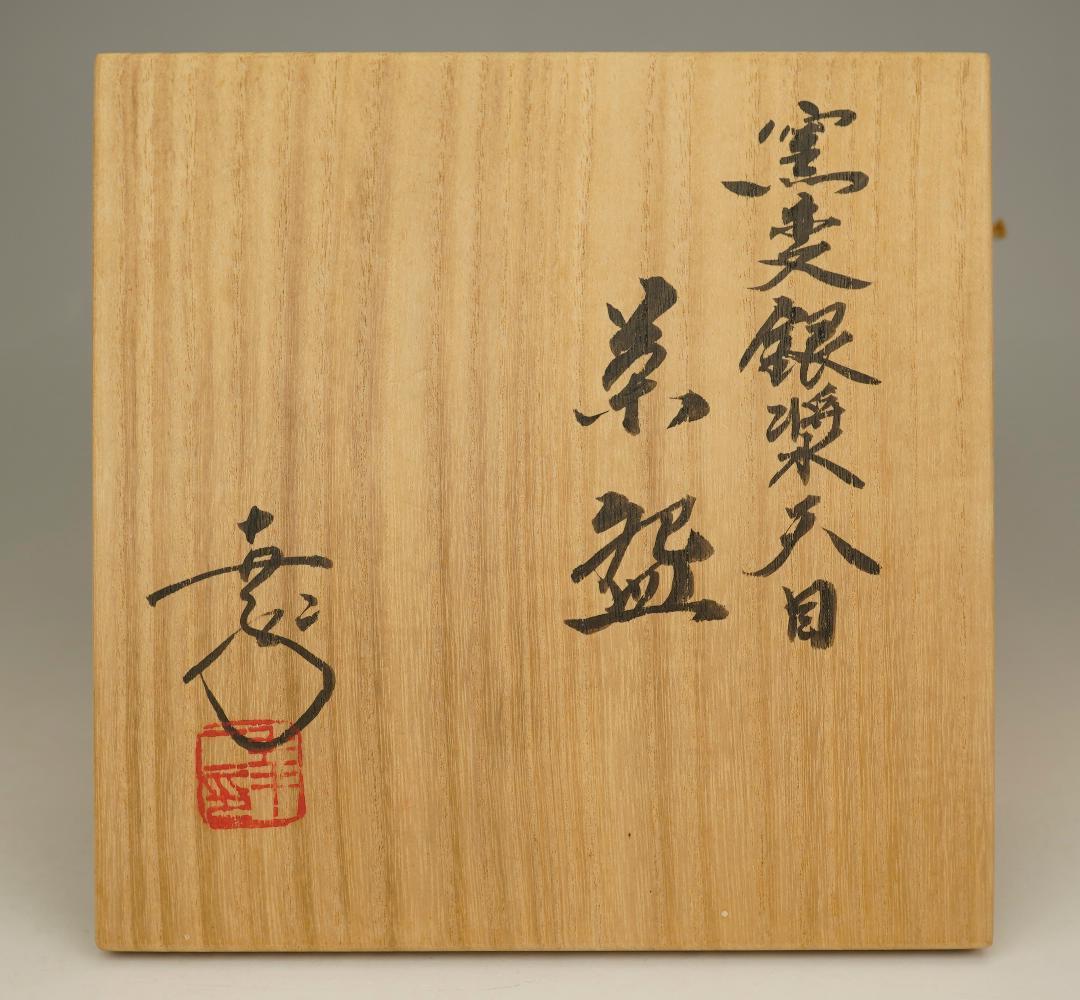 窯変銀漿天目
茶盌